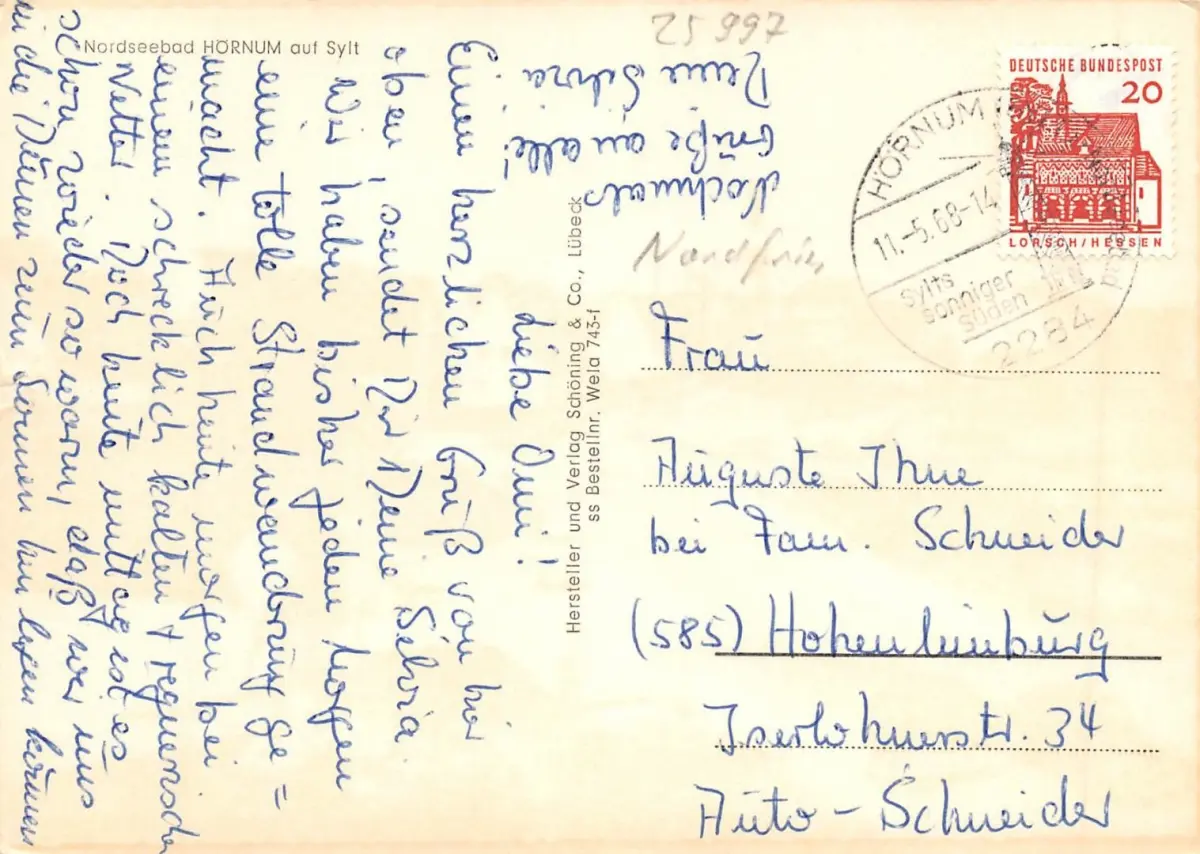 Nordseebad HÖRNUM auf Sylt
Liebe Omi!
Einen herzlichen Gruß von hier
oben, sendet Dir Deine Silvia.
Wir haben bisher jeden Morgen
eine tolle Strandwandrung ge=
macht. Auch heute morgen bei
einem schrecklich kalten + regnerischen
Wetter. Doch heute mittag ist es
schon wieder so warm, daß wir uns
in die Dünen zum Sonnen hin legen können
Nochmals
Grüße an alle!
Deine Silvia
Hersteller und Verlag Schöning & Co., Lübeck
ss Bestellnr. Wela 743-f
25997
Nordfries
DEUTSCHE BUNDESPOST
20
LORSCH/HESSEN
HÖRNUM
11.-5.68-14
Sylts
sonniger
Süden
2284
Frau
Auguste Ihne
bei Fam. Schneider
(585) Hohenlimburg
Iserlohnerstr. 34
Auto-Schneider